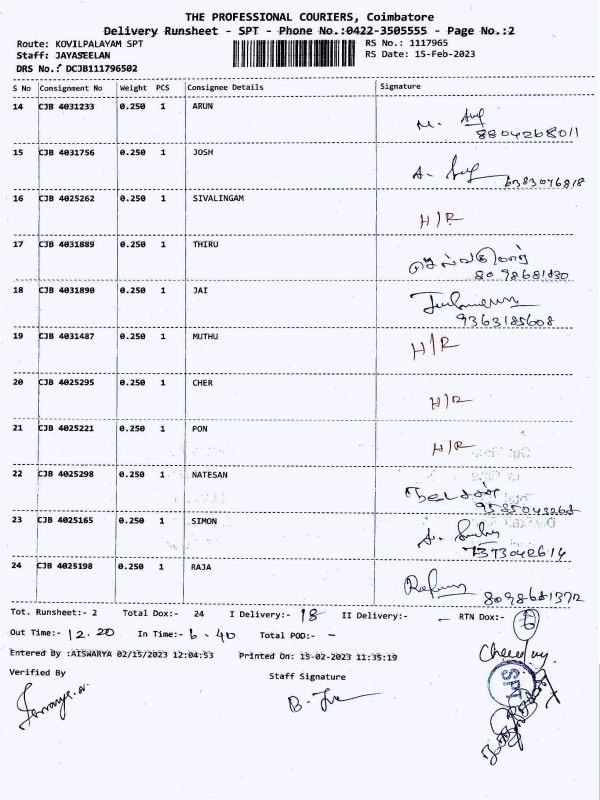 THE PROFESSIONAL COURIERS, Coimbatore
Delivery Runsheet - SPT - Phone No.:0422-3505555 - Page No.:2
Route: KOVILPALAYAM SPT RS No.: 1117965
Staff: JAYASEELAN RS Date: 15-Feb-2023
DRS No.: DCJB111796502
S No Consignment No Weight PCS Consignee Details Signature
14 CJB 4031233 0.250 1 ARUN
8804268011
15 CJB 4031756 0.250 1 JOSH
6383076818
16 CJB 4025262 0.250 1 SIVALINGAM H/R
17 CJB 4031889 0.250 1 THIRU
18 CJB 4031890 0.250 1 JAI
9363185608
19 CJB 4031487 0.250 1 MUTHU H/R
20 CJB 4025295 0.250 1 CHER H/R
21 CJB 4025221 0.250 1 PON H/R
22 CJB 4025298 0.250 1 NATESAN
23 CJB 4025165 0.250 1 SIMON
7373042614
24 CJB 4025198 0.250 1 RAJA
8098681372
Tot. Runsheet:- 2 Total Dox:- 24 I Delivery:- 18 II Delivery:- - RTN Dox:- 6
Out Time:- 12.20 In Time:- 6.40 Total POD:- -
Entered By :AISWARYA 02/15/2023 12:04:53 Printed On: 15-02-2023 11:35:19
Verified By Staff Signature
SPT